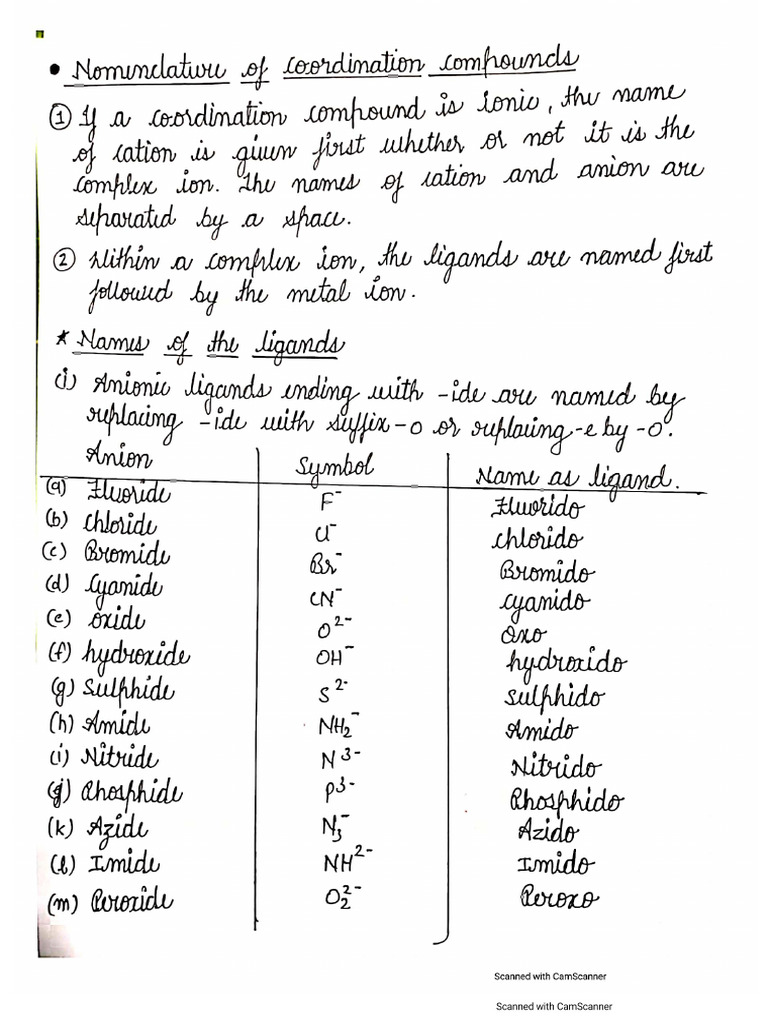 • Nomenclature of coordination compounds
① If a coordination compound is ionic, the name
of cation is given first whether or not it is the
complex ion. The names of cation and anion are
separated by a space.
② Within a complex ion, the ligands are named first
followed by the metal ion.
* Names of the ligands
(i) Anionic ligands ending with -ide are named by
replacing -ide with suffix -o or replacing -e by -o.
Anion Symbol Name as ligand.
(a) Fluoride F⁻ Fluorido
(b) chloride Cl⁻ chlorido
(c) Bromide Br⁻ Bromido
(d) Cyanide CN⁻ cyanido
(e) oxide O²⁻ Oxo
(f) hydroxide OH⁻ hydroxido
(g) Sulphide S²⁻ sulphido
(h) Amide NH₂⁻ Amido
(i) Nitride N³⁻ Nitrido
(j) Phosphide P³⁻ Phosphido
(k) Azide N₃⁻ Azido
(l) Imide NH²⁻ Imido
(m) Peroxide O₂²⁻ Peroxo
Scanned with CamScanner
Scanned with CamScanner